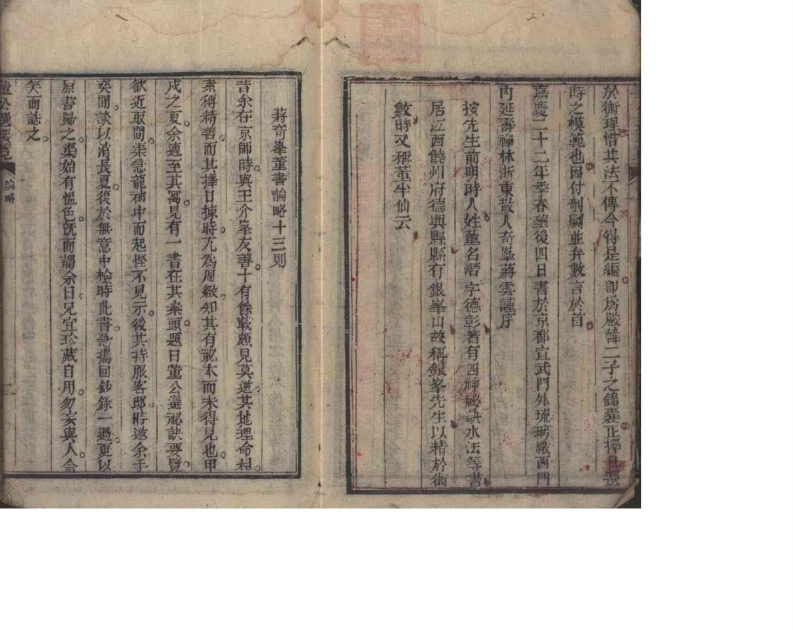 於術理惜其法不傳今得是編即為嚴韓二子之錦囊正擇日選
時之模範也因付剞劂並弁數言於首
嘉慶二十二年季春望後四日書於京都宣武門外琉璃廠西門
內延壽禪林浙東散人奇峯蔣雲謹序
按先生前明時人姓董名潛字德彰著有四神祕訣水法等書
居江西饒州府德興縣縣有銀峯山故稱銀峯先生以精於術
數時又稱董半仙云
蔣奇峯董書論略十三則
昔余在京師時與王介峯友善十有餘載頗見莫逆其地理命相
素稱精善而其擇日揀時尤為周緻知其有祕本而未得見也甲
戌之夏余適至其寓見有一書在其案頭題曰董公選祕訣要覽
欲近取閱渠急龍袖中而起慳不見示後其持服客邸時邀余手
奕閒談以消長夏復於無意中檢時此書急攜回鈔錄一過更以
原書歸之渠始有慍色旣而謂余曰兄宜珍藏自用勿妄與人余
笑而誌之
論略